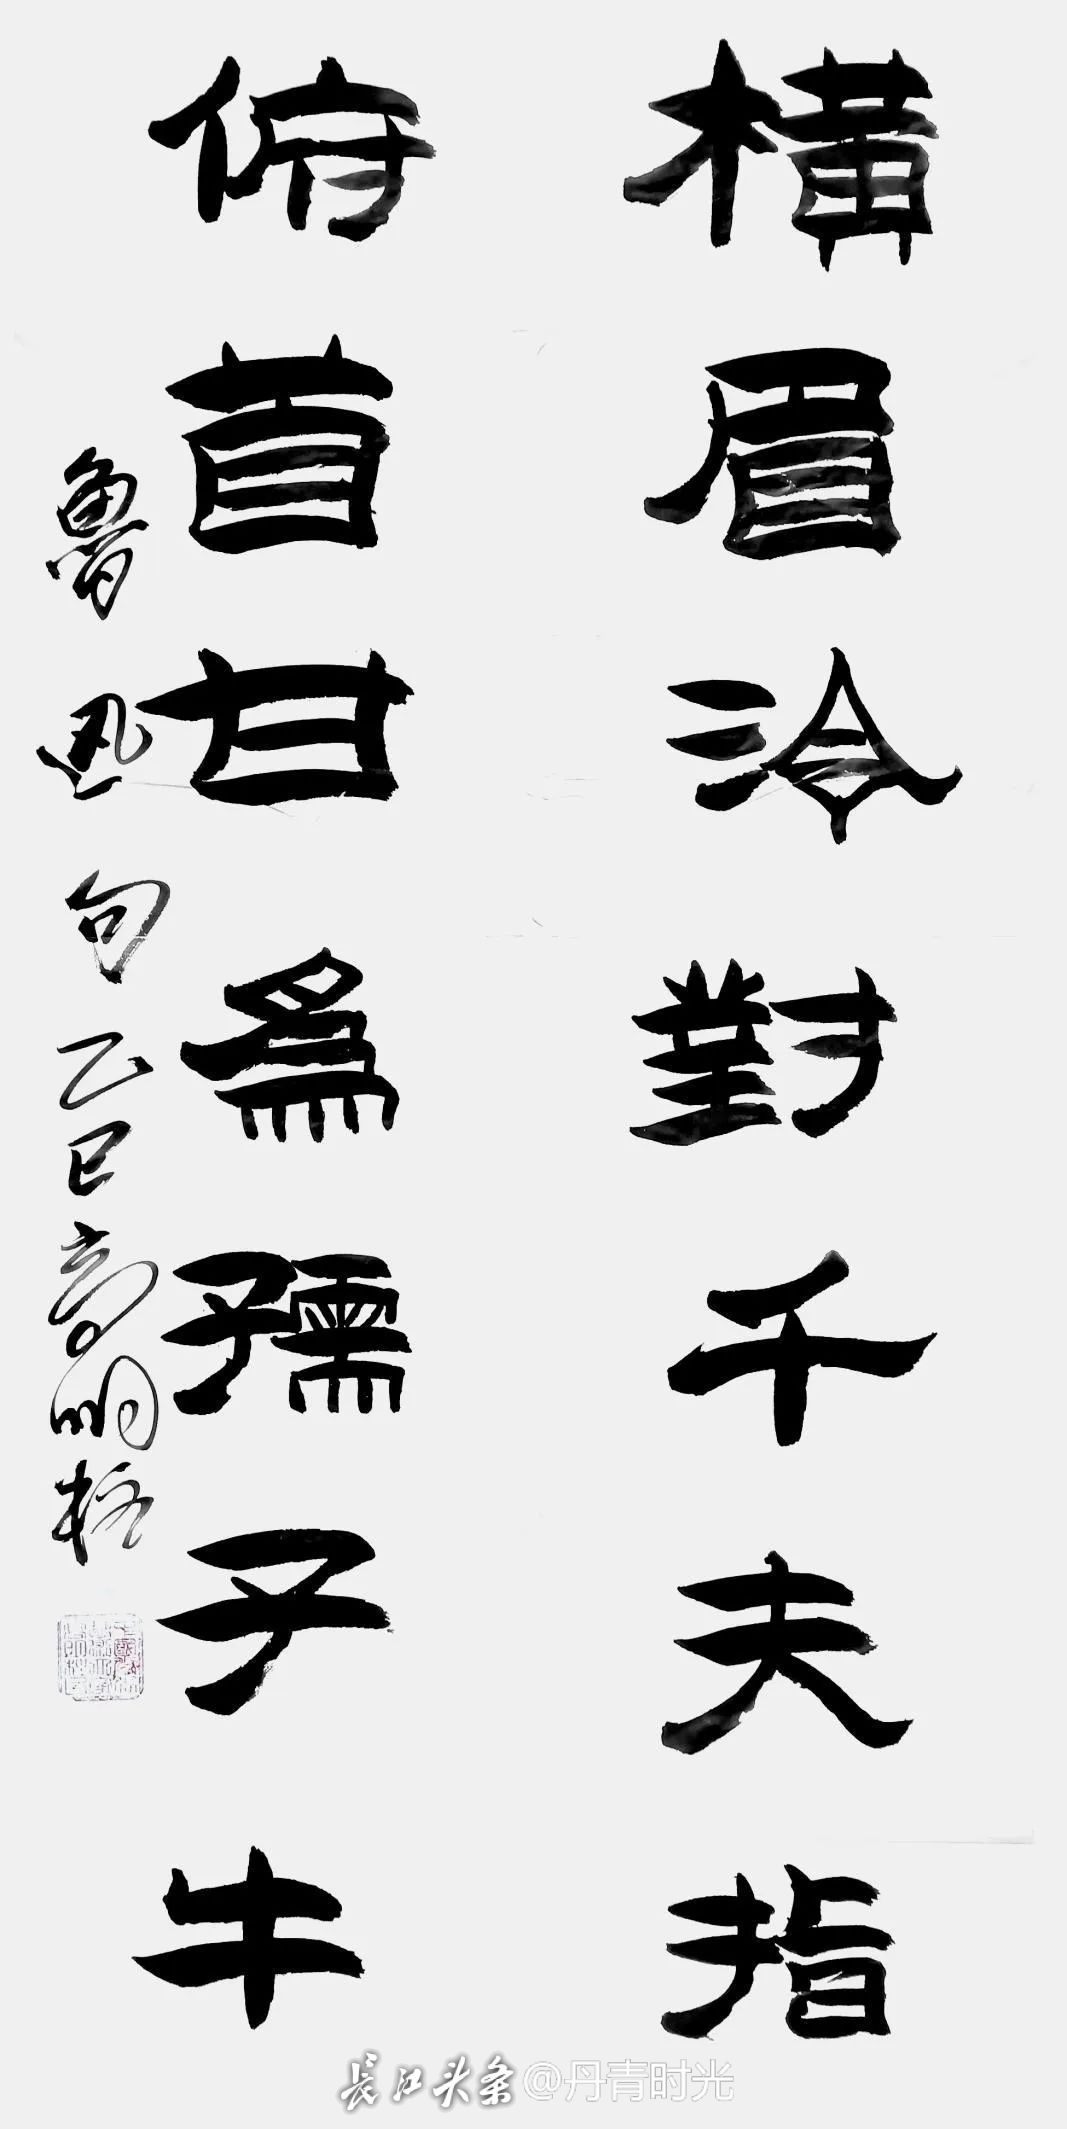 橫眉冷對千夫指
俯首甘爲孺子牛
魯迅句乙巳高明柱
長江头条@丹青时光